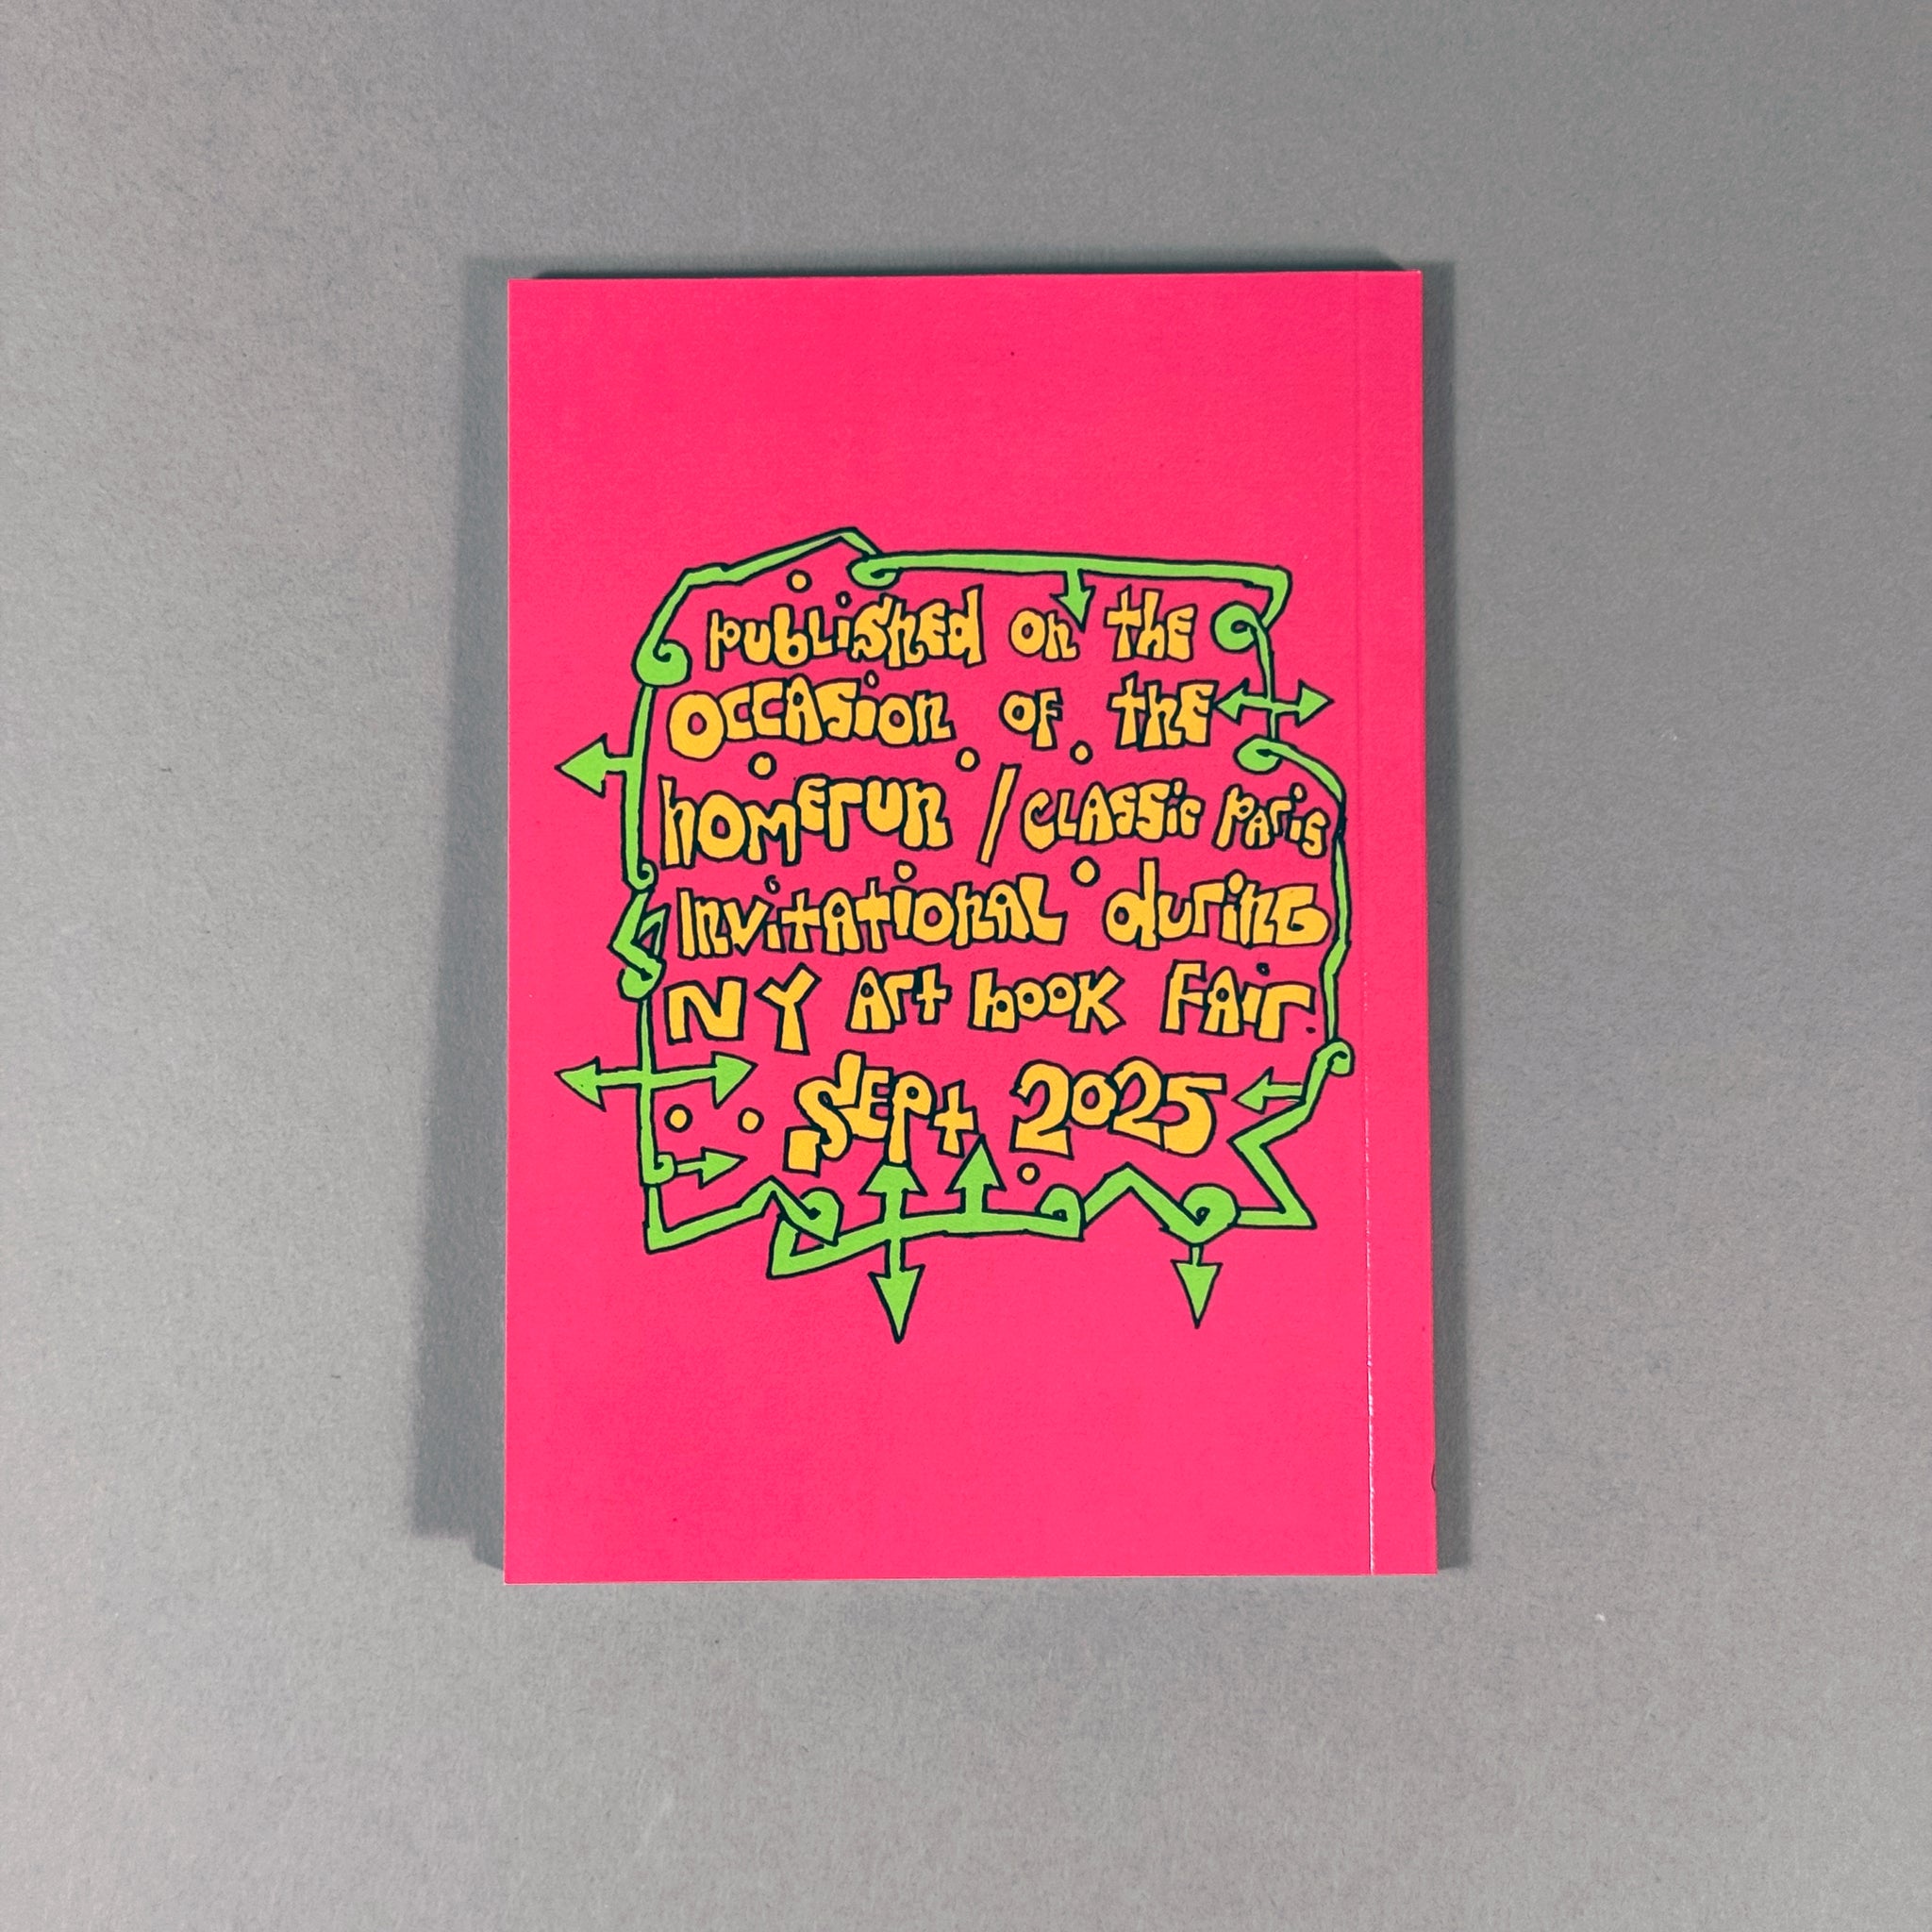 published on the
occasion of the
homerun / classic paris
invitational during
NY Art book Fair
Sept 2025